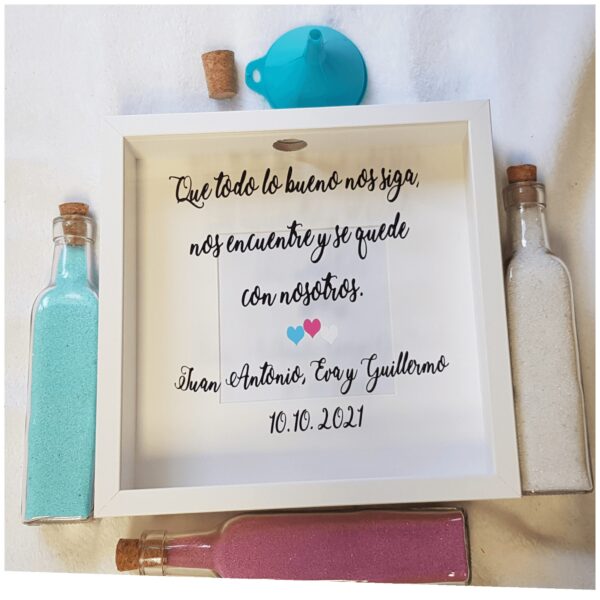 Que todo lo bueno nos siga,
nos encuentre y se quede
con nosotros.
Juan Antonio, Eva y Guillermo
10.10.2021